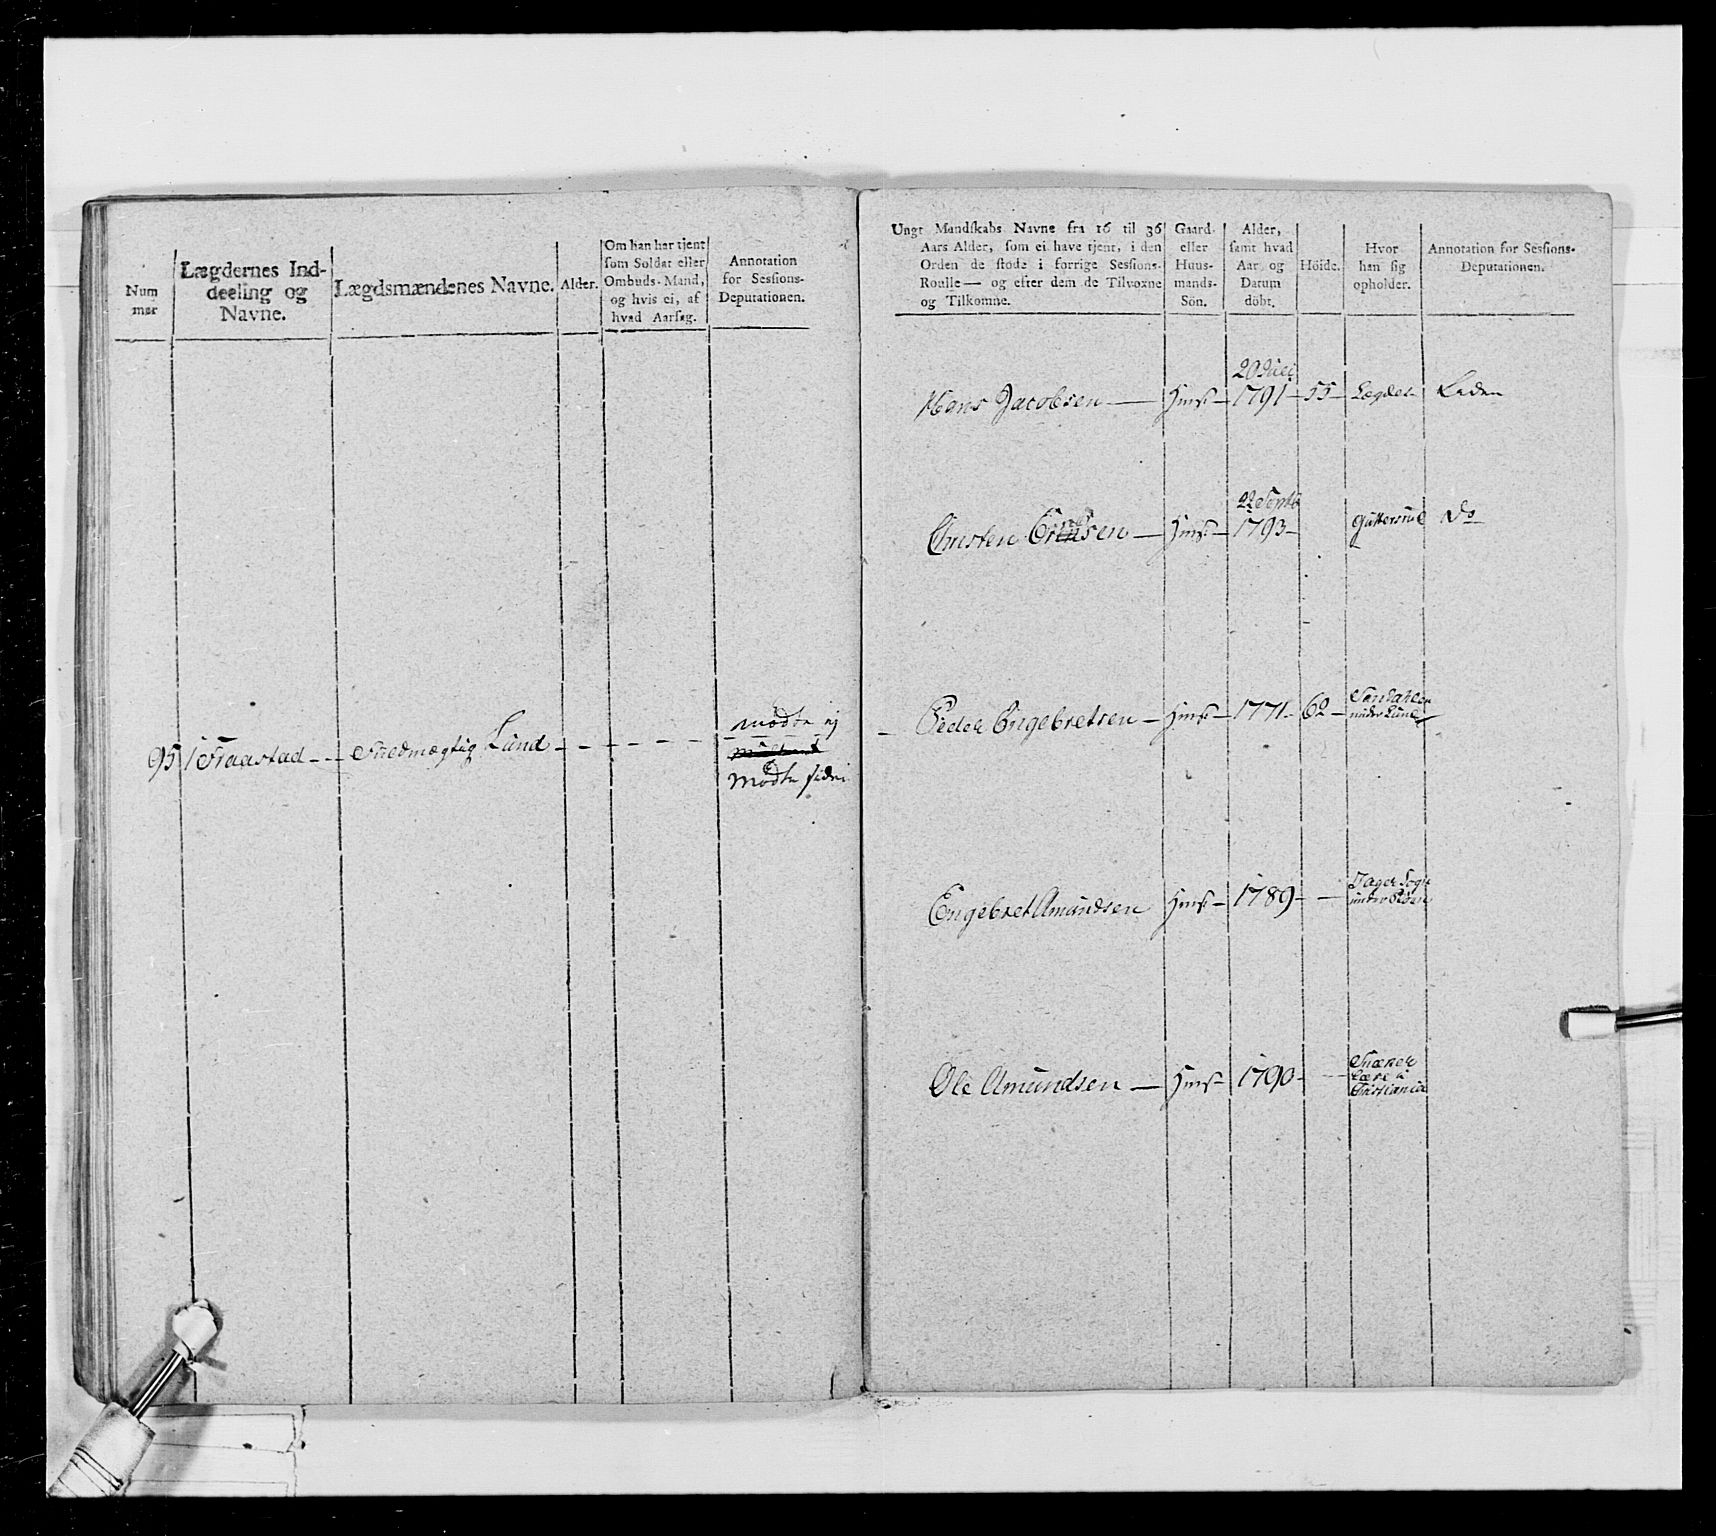 Num
mer
Lægdernes Ind-
deeling og
Navne.
Lægdsmændenes Navne.
Alder.
Om han har tjent
som Soldat eller
Ombuds-Mand,
og hvis ei, af
hvad Aarsag.
Annotation
for Sessions-
Deputationen.
95
Fraastad
Lund
mødte ej
Mødte siden
Ungt Mandskabs Navne fra 16 til 36
Aars Alder, som ei have tjent, i den
Orden de stode i forrige Sessions-
Roulle — og efter dem de Tilvoxne
og Tilkomne.
Gaard-
eller
Huus-
mands-
Sön.
Alder,
samt hvad
Aar og
Datum
döbt.
Höide.
Hvor
han sig
opholder.
Annotation for Sessions-
Deputationen.
Hans Jacobsen — Hmst — 20 Juli 1791 — 55 — Lægdet — Liden
Christen — Hmst — 22 Septb 1793 — Do
Peder Engebretsen — Hmst — 1771 — 62 —
under Lund
Engebret Amundsen Hmst — 1789 —
Ole Amundsen — Hmst — 1790 —
Snecker
Lære i
Christiania